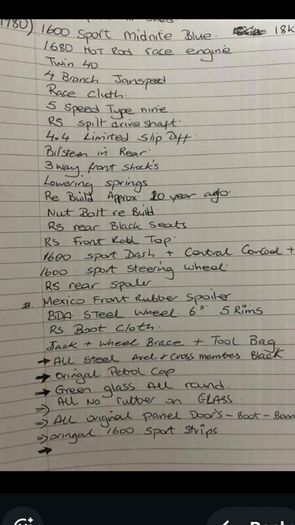 1780) 1600 Sport Midnite Blue. 18K
1680 Hot Rod race engine
Twin 40
4 Branch Janspeed
Race Cluth.
5 Speed Type nine
RS spilt drive shaft.
4.4 Limited Slip Diff.
Bilstein in Rear.
3 way front shock's
Lowering springs
Re Build Approx 20 year ago.
Nut Bolt re Build
RS rear Black Seats
RS Front Roll Top.
1600 sport Dash + Central Consol +
1600 sport steering wheel.
RS rear spoler
Mexico Front Rubber Spoiler
BDA Steel Wheel 6" 5 Rims
RS Boot Cloth.
Jack + Wheel Brace + Tool Bag
→ ALL Steel Axel + Cross members Black
→ oringal Petrol Cap
→ Green glass All round.
⇒ ALL No rubber on GLASS
⇒ ALL original panel Door's - Boot - Bonn
⇒ oringal 1600 Sport Strips
→